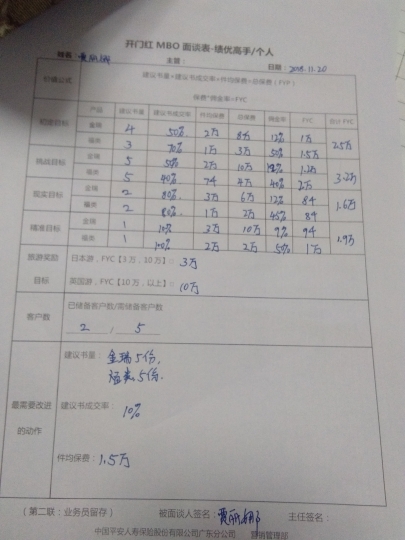 开门红 MBO 面谈表-绩优高手/个人
姓名： 主管： 日期：2018.11.20
价值公式 建议书量*建议书成交率*件均保费=总保费（FYP）
保费*佣金率=FYC
产品 建议书量 建议书成交率 件均保费 总保费 佣金率 FYC 合计 FYC
初定目标 金瑞 4 50% 2万 8万 12% 1万 2.5万
福类 3 70% 1万 3万 50% 1.5万
挑战目标 金瑞 5 50% 2万 10万 1.2万 3.2万
福类 5 40% 4万 40% 2万
现实目标 金瑞 2 80% 3万 6万 12% 1.6万
福类 2 80% 1万 2万 45%
精准目标 金瑞 1 3万 10万 9% 1.9万
福类 1 100% 2万 2万 50% 1万
旅游奖励 日本游，FYC【3 万，10 万】： 3万
目标 英国游，FYC【10 万，以上】： 10万
客户数 已储备客户数/需储备客户数
2 , 5
建议书量： 金瑞5份,
福类5份.
最需要改进 建议书成交率： 10%
的动作
件均保费： 1.5万
（第二联：业务员留存） 被面谈人签名：贾丽娜 主任签名：
中国平安人寿保险股份有限公司广东分公司 营销管理部